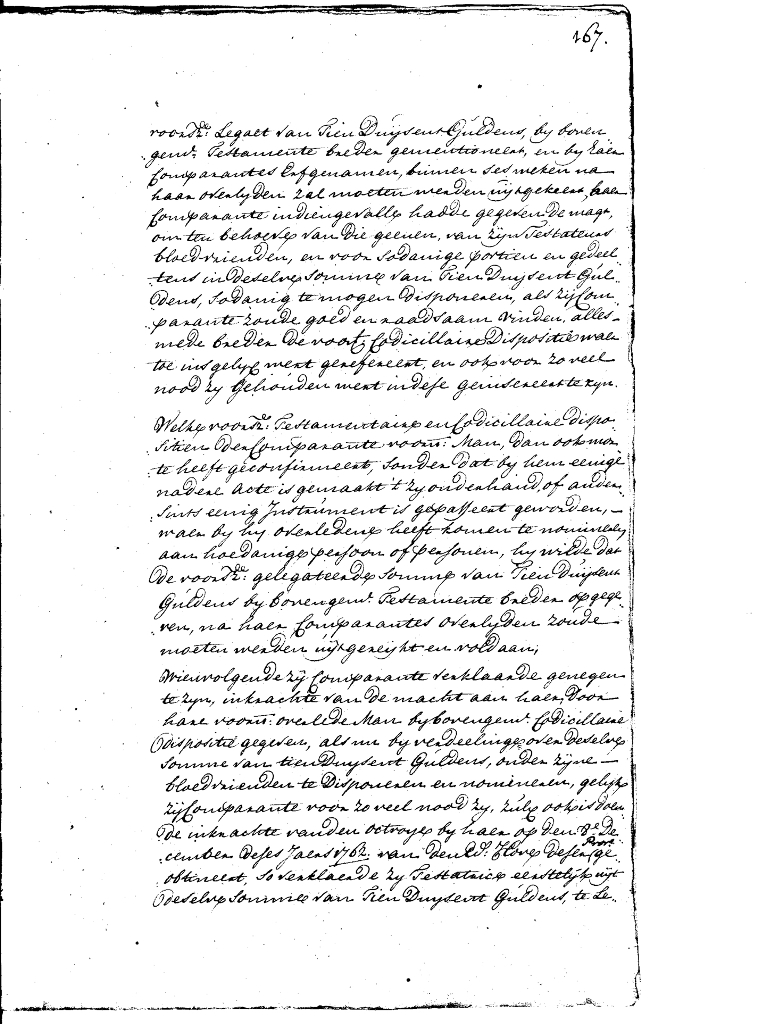 167.
voorsz: Legaet van Tien Duijsent Guldens, by boven
gend. Testamente breder gementioneert, en by haer
Comparantes Erfgenamen, binnen ses weken na
haar overlyden zal moeten werden uijtgekeert, haer
Comparante indiengevalle hadde gegeven de magt,
om ten behoeve van die geenen, van zijn Testateurs
bloedvrienden, en voor sodanige portien en gedeel
tens in deselve somme van Tien Duijsent Gul
dens, sodanig te mogen disponeren, als zij Com
parante zoude goed en raadsaam vinden, alles
mede breder de voorsz. Codicillaire Dispositie waer
toe insgelyx wert gerefereert, en ook voor zo veel
nood zy Gehouden wert in dese geinsereert te zyn.
Welke voorsz: Testamentaire en Codicillaire dispo
sitien der Comparante voorn: Man, dan ook mor
te heeft geconfirmeert, sonder dat by hem eenige
nadere Acte is gemaakt 't zy onderhand, of ander
sints eenig Instrument is gepasseert geworden,
waer by hy overledene heeft komen te nomineren
aan hoedanige persoon of personen, hy wilde dat
de voorsz: gelegateerde somme van Tien Duijsent
Guldens by bovengend. Testamente breder opgege
ven, na haer Comparantes overlyden zoude
moeten werden uijtgereijkt en voldaan;
Dienvolgende zij Comparante verklaarde genegen
te zyn, in krachte van de macht aan haer, Door
hare voorn: overlede Man by bovengend. Codicillaire
Dispositie gegeven, als nu by verdeelinge over deselve
somme van tien Duijsent Guldens, onder zyne
bloedvrienden te Disponeren en nomineren, gelijk
zij Comparante voor zo veel nood zy, zulx ook is doen
de in krachte van den octroye by haer op den 8e. De
cember deses Jaers 1762. van den Ed. Hove deser Prov:
ge obtineert, So verklaerde zy Testatrice eerstelijk uijt
deselve somme van Tien Duijsent Guldens, te Le